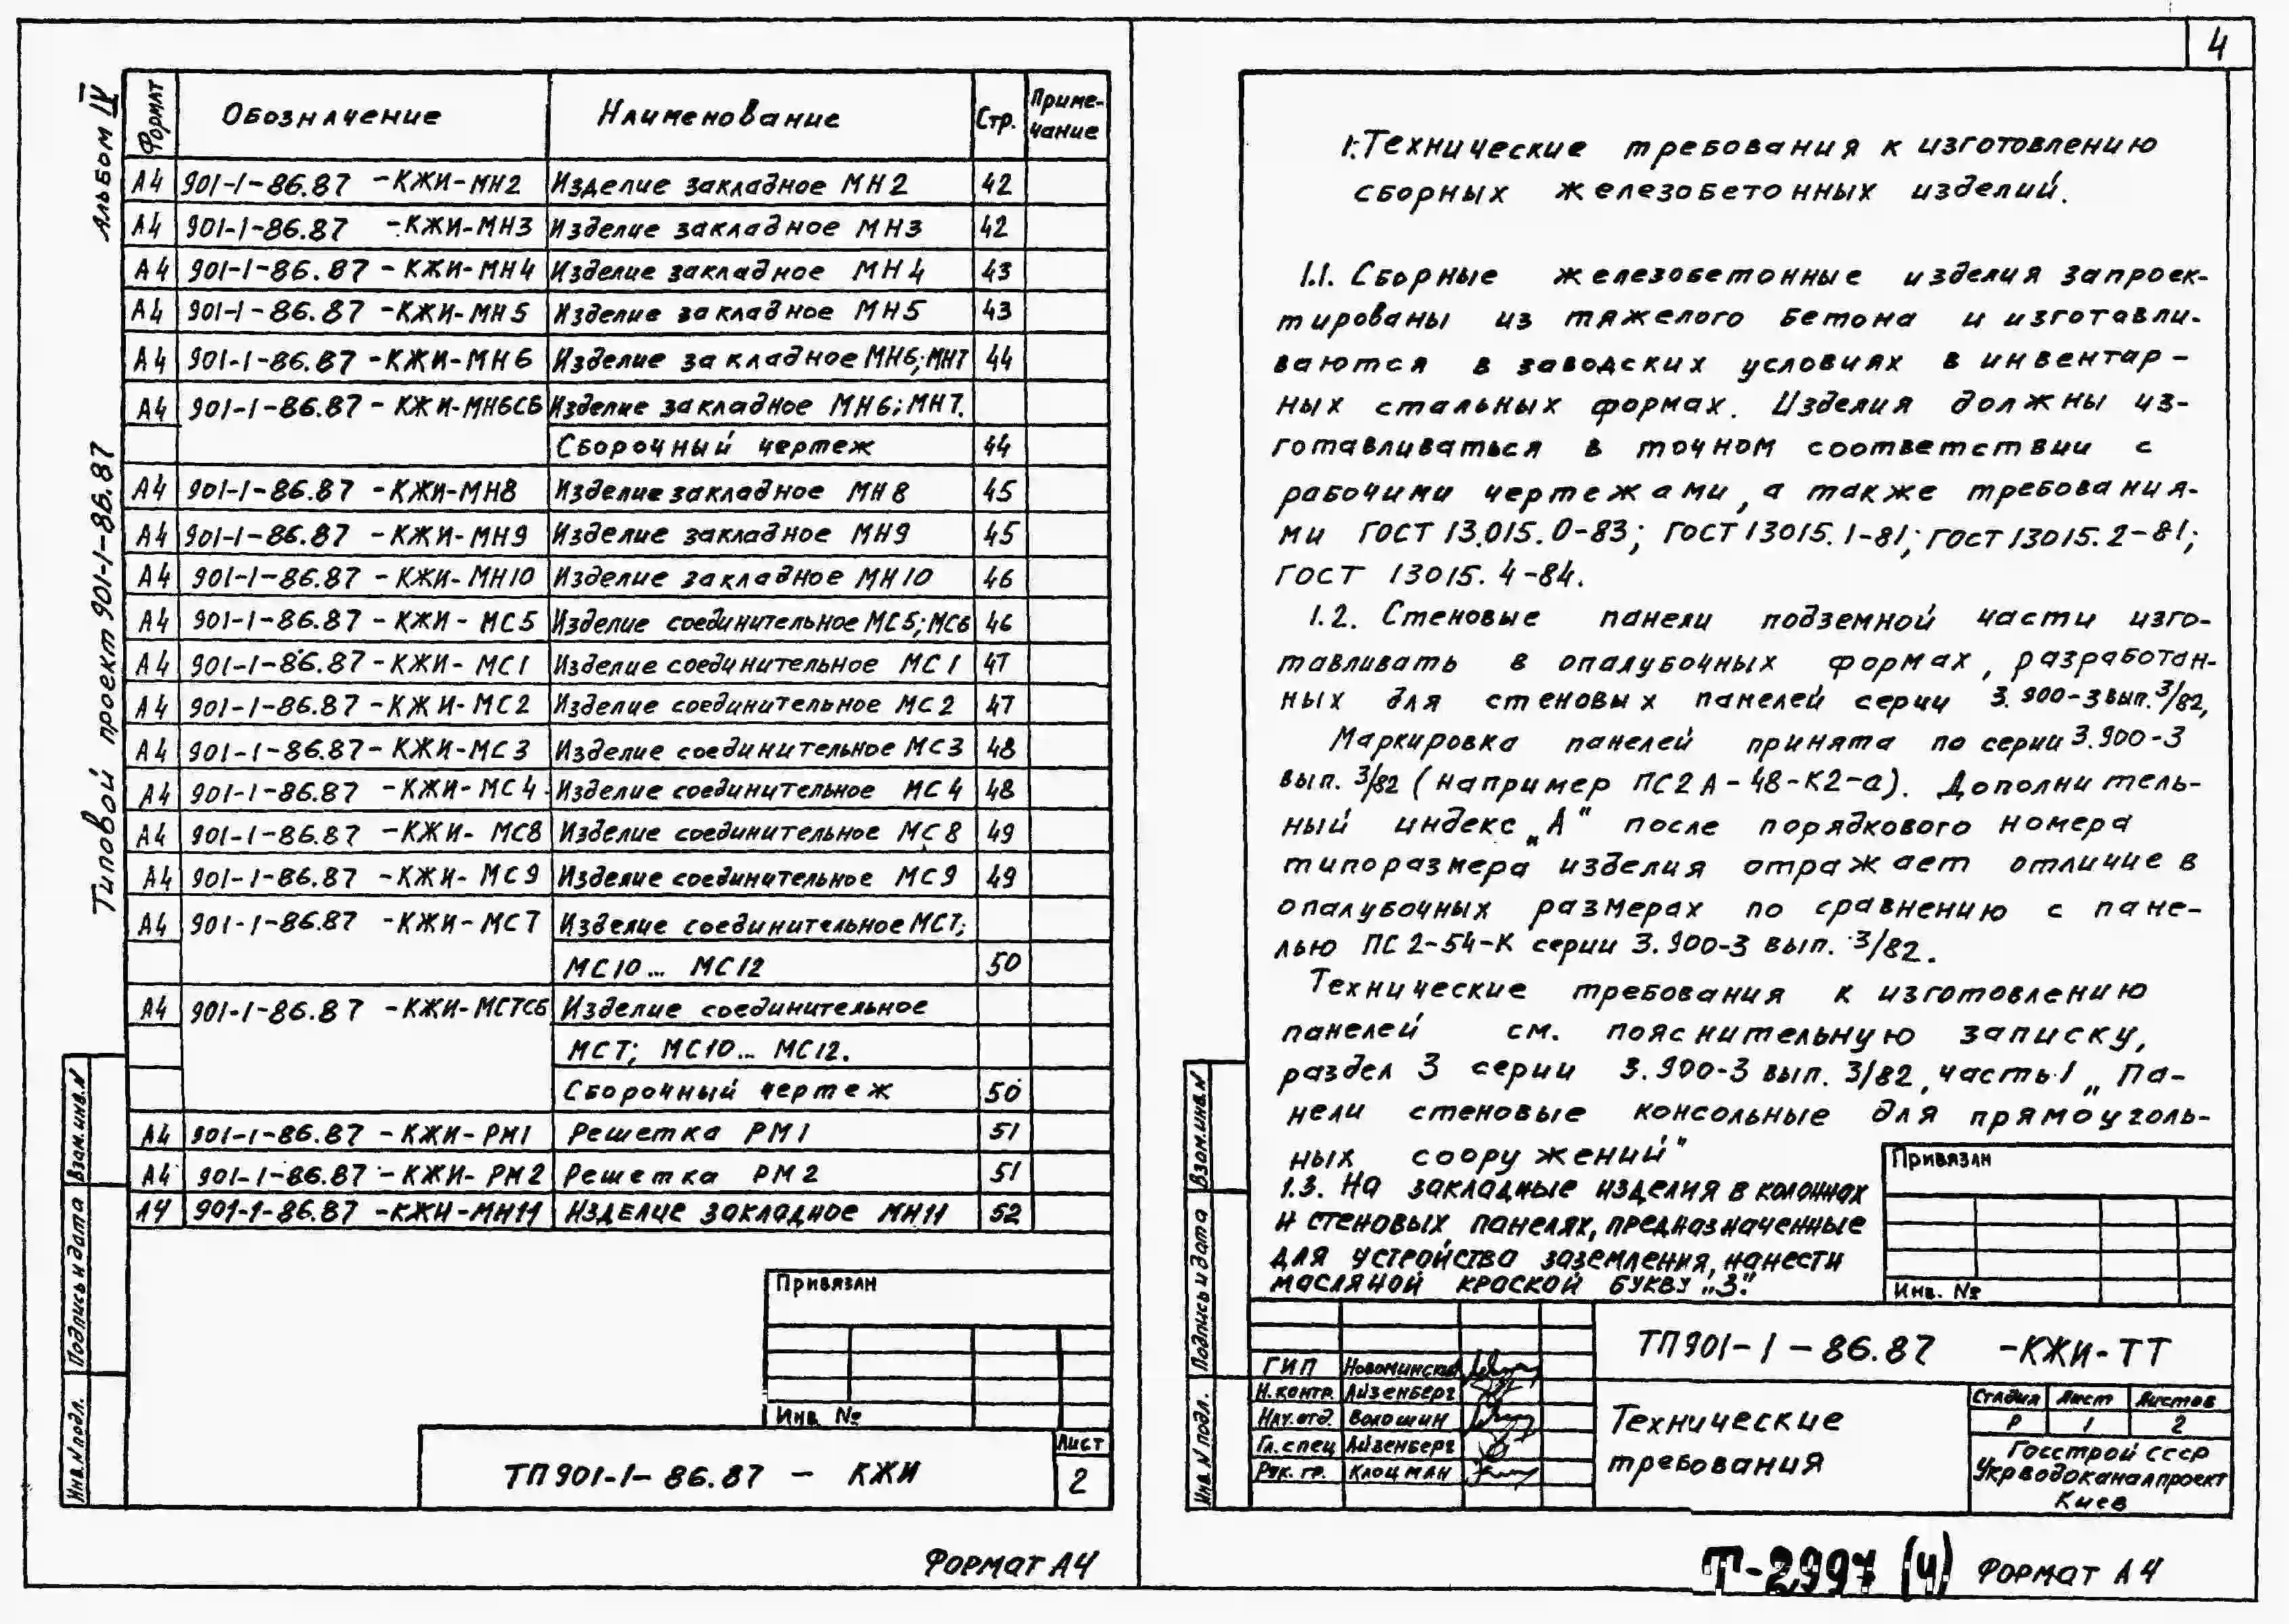 4
Альбом IV
Типовой проект 901-1-86.87
Формат Обозначение Наименование Стр. Приме-
чание
А4 901-1-86.87 -КЖИ-МН2 Изделие закладное МН2 42
А4 901-1-86.87 -КЖИ-МН3 Изделие закладное МН3 42
А4 901-1-86.87 -КЖИ-МН4 Изделие закладное МН4 43
А4 901-1-86.87 -КЖИ-МН5 Изделие закладное МН5 43
А4 901-1-86.87 -КЖИ-МН6 Изделие закладное МН6; МН7 44
А4 901-1-86.87 -КЖИ-МН6СБ Изделие закладное МН6; МН7.
Сборочный чертеж 44
А4 901-1-86.87 -КЖИ-МН8 Изделие закладное МН8 45
А4 901-1-86.87 -КЖИ-МН9 Изделие закладное МН9 45
А4 901-1-86.87 -КЖИ-МН10 Изделие закладное МН10 46
А4 901-1-86.87 -КЖИ-МС5 Изделие соединительное МС5; МС6 46
А4 901-1-86.87 -КЖИ-МС1 Изделие соединительное МС1 47
А4 901-1-86.87 -КЖИ-МС2 Изделие соединительное МС2 47
А4 901-1-86.87 -КЖИ-МС3 Изделие соединительное МС3 48
А4 901-1-86.87 -КЖИ-МС4 Изделие соединительное МС4 48
А4 901-1-86.87 -КЖИ-МС8 Изделие соединительное МС8 49
А4 901-1-86.87 -КЖИ-МС9 Изделие соединительное МС9 49
А4 901-1-86.87 -КЖИ-МС7 Изделие соединительное МС7;
МС10... МС12 50
А4 901-1-86.87 -КЖИ-МС7СБ Изделие соединительное
МС7; МС10... МС12.
Сборочный чертеж 50
А4 901-1-86.87 -КЖИ-РМ1 Решетка РМ1 51
А4 901-1-86.87 -КЖИ-РМ2 Решетка РМ2 51
А4 901-1-86.87 -КЖИ-МН11 Изделие закладное МН11 52
Взам.инв.N
Подпись и дата
Инв.N подл.
Привязан
Инв. №
ТП 901-1-86.87 - КЖИ
Лист
2
Формат А4
1. Технические требования к изготовлению
сборных железобетонных изделий.
1.1. Сборные железобетонные изделия запроек-
тированы из тяжелого бетона и изготавли-
ваются в заводских условиях в инвентар-
ных стальных формах. Изделия должны из-
готавливаться в точном соответствии с
рабочими чертежами, а также требования-
ми ГОСТ 13.015.0-83; ГОСТ 13015.1-81; ГОСТ 13015.2-81;
ГОСТ 13015.4-84.
1.2. Стеновые панели подземной части изго-
тавливать в опалубочных формах, разработан-
ных для стеновых панелей серии 3.900-3 вып.3/82,
Маркировка панелей принята по серии 3.900-3
вып. 3/82 (например ПС2А-48-К2-а). Дополнитель-
ный индекс „А" после порядкового номера
типоразмера изделия отражает отличие в
опалубочных размерах по сравнению с пане-
лью ПС2-54-К серии 3.900-3 вып. 3/82.
Технические требования к изготовлению
панелей см. пояснительную записку,
раздел 3 серии 3.900-3 вып. 3/82, часть 1 „Па-
нели стеновые консольные для прямоуголь-
ных сооружений"
1.3. На закладные изделия в колоннах
и стеновых панелях, предназначенные
для устройства заземления, нанести
масляной краской букву „З".
Взам.инв.N
Подпись и дата
Инв.N подл.
Привязан
Инв. №
ТП 901-1-86.87 -КЖИ-ТТ
ГИП Новоминский
Н.контр. Айзенберг
Нач.отд. Волошин
Гл.спец Айзенберг
Рук. гр. Клоцман
Технические
требования
Стадия Лист Листов
Р 1 2
Госстрой СССР
Укрводоканалпроект
Киев
Т-2997 (4) Формат А4